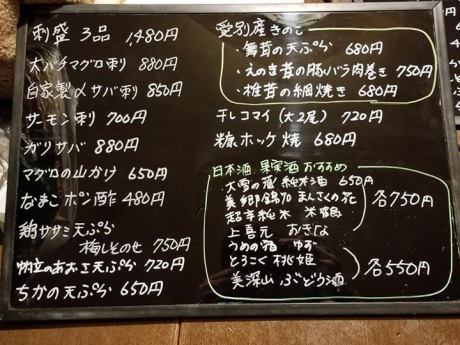 刺盛 3品 1,480円
大バチマグロ刺 880円
自家製〆サバ刺 850円
サーモン刺 700円
ガリサバ 880円
マグロの山かけ 650円
なまこポン酢 480円
鶏ササミ天ぷら
梅しその世 750円
帆立のあおさ天ぷら 720円
ちかの天ぷら 650円
愛別産きのこ
・舞茸の天ぷら 680円
・えのき茸の豚バラ肉巻き 750円
・椎茸の網焼き 680円
干しコマイ(大2尾) 720円
糠ホッケ焼 680円
日本酒.果実酒おすすめ
大雪の蔵 純米酒 650円
美郷錦70 まんさくの花
超辛純米 米鶴
上喜元 おきな
各750円
うめの酒 ゆず
とろこく桃姫
美深山 ぶどう酒
各550円